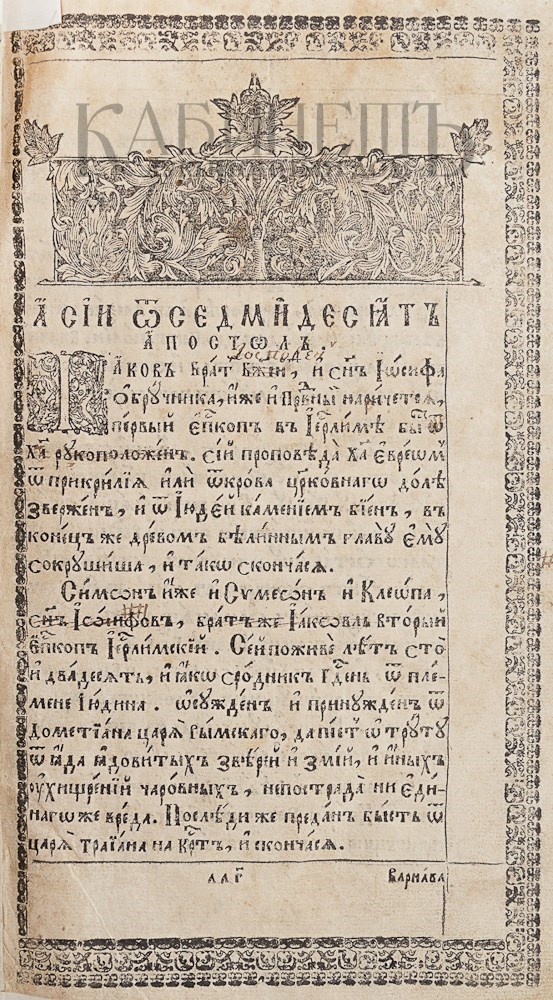 КАБИНЕТЪ
А҆ СІИ Ѿ СЕДМИ́ДЕСѦ́ТЪ
А҆ПОСТѠЛЪ.
Господеⷩ҇
І҆А́КОВЪ бра́т бж҃їи, и҆ сн҃ъ І҆ѡ́сифа
Ѻ҆брꙋчника, и҆́же и҆ Пра́вⷣный нариче́тсѧ,
пе́рвый є҆пⷭ҇копъ въ І҆ер҃ли́мѣ бы́сⷮ ѿ
Хⷭ҇а̀ рꙋкополо́женъ. Се́й проповѣ́да Хⷭ҇а̀ є҆вре́ѡмъ
ѿ прикри́лїѧ и҆лѝ ѿ кро́ва цр҃ко́внагѡ до́лѣ
зве́рженъ, и҆ ѿ І҆ꙋде́й ка́менїемъ бїе́нъ, въ
коне́цъ же дре́вомъ бѣли́лнымъ главꙋ̀ є҆мꙋ̀
сокрꙋши́ша, и҆ та́кѡ сконча́сѧ.
Сѷмеѡ́нъ и҆́же и҆ Сѷмео́нъ и҆ Клеѡ́па,
сн҃ъ І҆ѡ́сифовъ, бра́тъ же І҆а́кѡвль вторы́й
є҆пⷭ҇копъ І҆ер҃ли́мскїй. Се́й поживѐ лѣ́тъ сто̀
и҆ два́десѧть, и҆ ꙗ҆́кѡ сро́дникъ гдⷭ҇ень ѿ пле́-
мене І҆ю́дина. ѡ҆сꙋжде́нъ и҆ принꙋжде́нъ ѿ
Дометїа́на царѧ̀ ры́мскагѡ, да пїе́тъ ѡ҆трꙋ́тꙋ
ѿ ꙗ҆́да ꙗ҆дови́тыхъ ѕвѣре́й и҆ ѕмі́й, и҆ и҆́ныхъ
ᲂу҆хищре́нїй чаро́вныхъ, непострада̀ ни є҆ди́-
нагѡ же вре́да. Послѣди́ же пре́данъ бы́сть ѿ
царѧ̀ Траїа́на на крⷭ҇тъ, и҆ сконча́сѧ.
Варна́ва